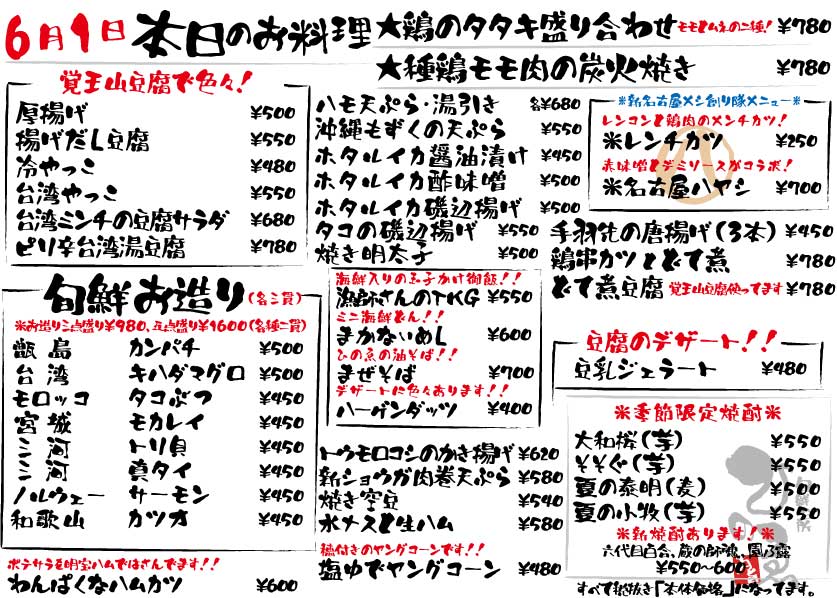 6月9日 本日のお料理
★鶏のタタキ盛り合わせ モモとムネの二種! ¥780
★種鶏モモ肉の炭火焼き ¥780
覚王山豆腐で色々!
厚揚げ ¥500
揚げだし豆腐 ¥550
冷やっこ ¥480
台湾やっこ ¥550
台湾ミンチの豆腐サラダ ¥680
ピリ辛台湾湯豆腐 ¥780
旬鮮お造り(各三貫)
※お造り三点盛り¥980、五点盛り¥1600(各種二貫)
甑島 カンパチ ¥500
台湾 キハダマグロ ¥500
モロッコ タコぶつ ¥450
宮城 モカレイ ¥450
三河 トリ貝 ¥450
三河 真タイ ¥450
ノルウェー サーモン ¥450
和歌山 カツオ ¥450
ポテサラを明宝ハムではさんでます!!
わんぱくなハムカツ ¥600
ハモ天ぷら・湯引き 各¥680
沖縄もずくの天ぷら ¥550
ホタルイカ醤油漬け ¥450
ホタルイカ酢味噌 ¥500
ホタルイカ磯辺揚げ ¥500
タコの磯辺揚げ ¥550
焼き明太子 ¥500
海鮮入りの玉子かけ御飯!!
漁師さんのTKG ¥550
ミニ海鮮どん!!
まかないめし ¥600
ひの魚の油そば!!
まぜそば ¥700
デザートに色々あります!!
ハーゲンダッツ ¥400
トウモロコシのかき揚げ ¥620
新ショウガ肉巻天ぷら ¥580
焼き空豆 ¥540
水ナスと生ハム ¥580
穂付きのヤングコーンです!!
塩ゆでヤングコーン ¥480
※新名古屋メシ創り隊メニュー※
レンコンと鶏肉のメンチカツ!
※レンチカツ ¥250
赤味噌とデミソースがコラボ!
※名古屋ハヤシ ¥700
手羽先の唐揚げ(3本) ¥450
鶏串カツとどて煮 ¥780
どて煮豆腐 覚王山豆腐使ってます ¥780
豆腐のデザート!!
豆乳ジェラート ¥480
※季節限定焼酎※
大和桜(芋) ¥550
そそぐ(芋) ¥550
夏の泰明(麦) ¥500
夏の小牧(芋) ¥550
※新焼酎あります!※
六代目百合、蔵の師魂、園乃露
¥550~600
すべて税抜き「本体価格」になってます。